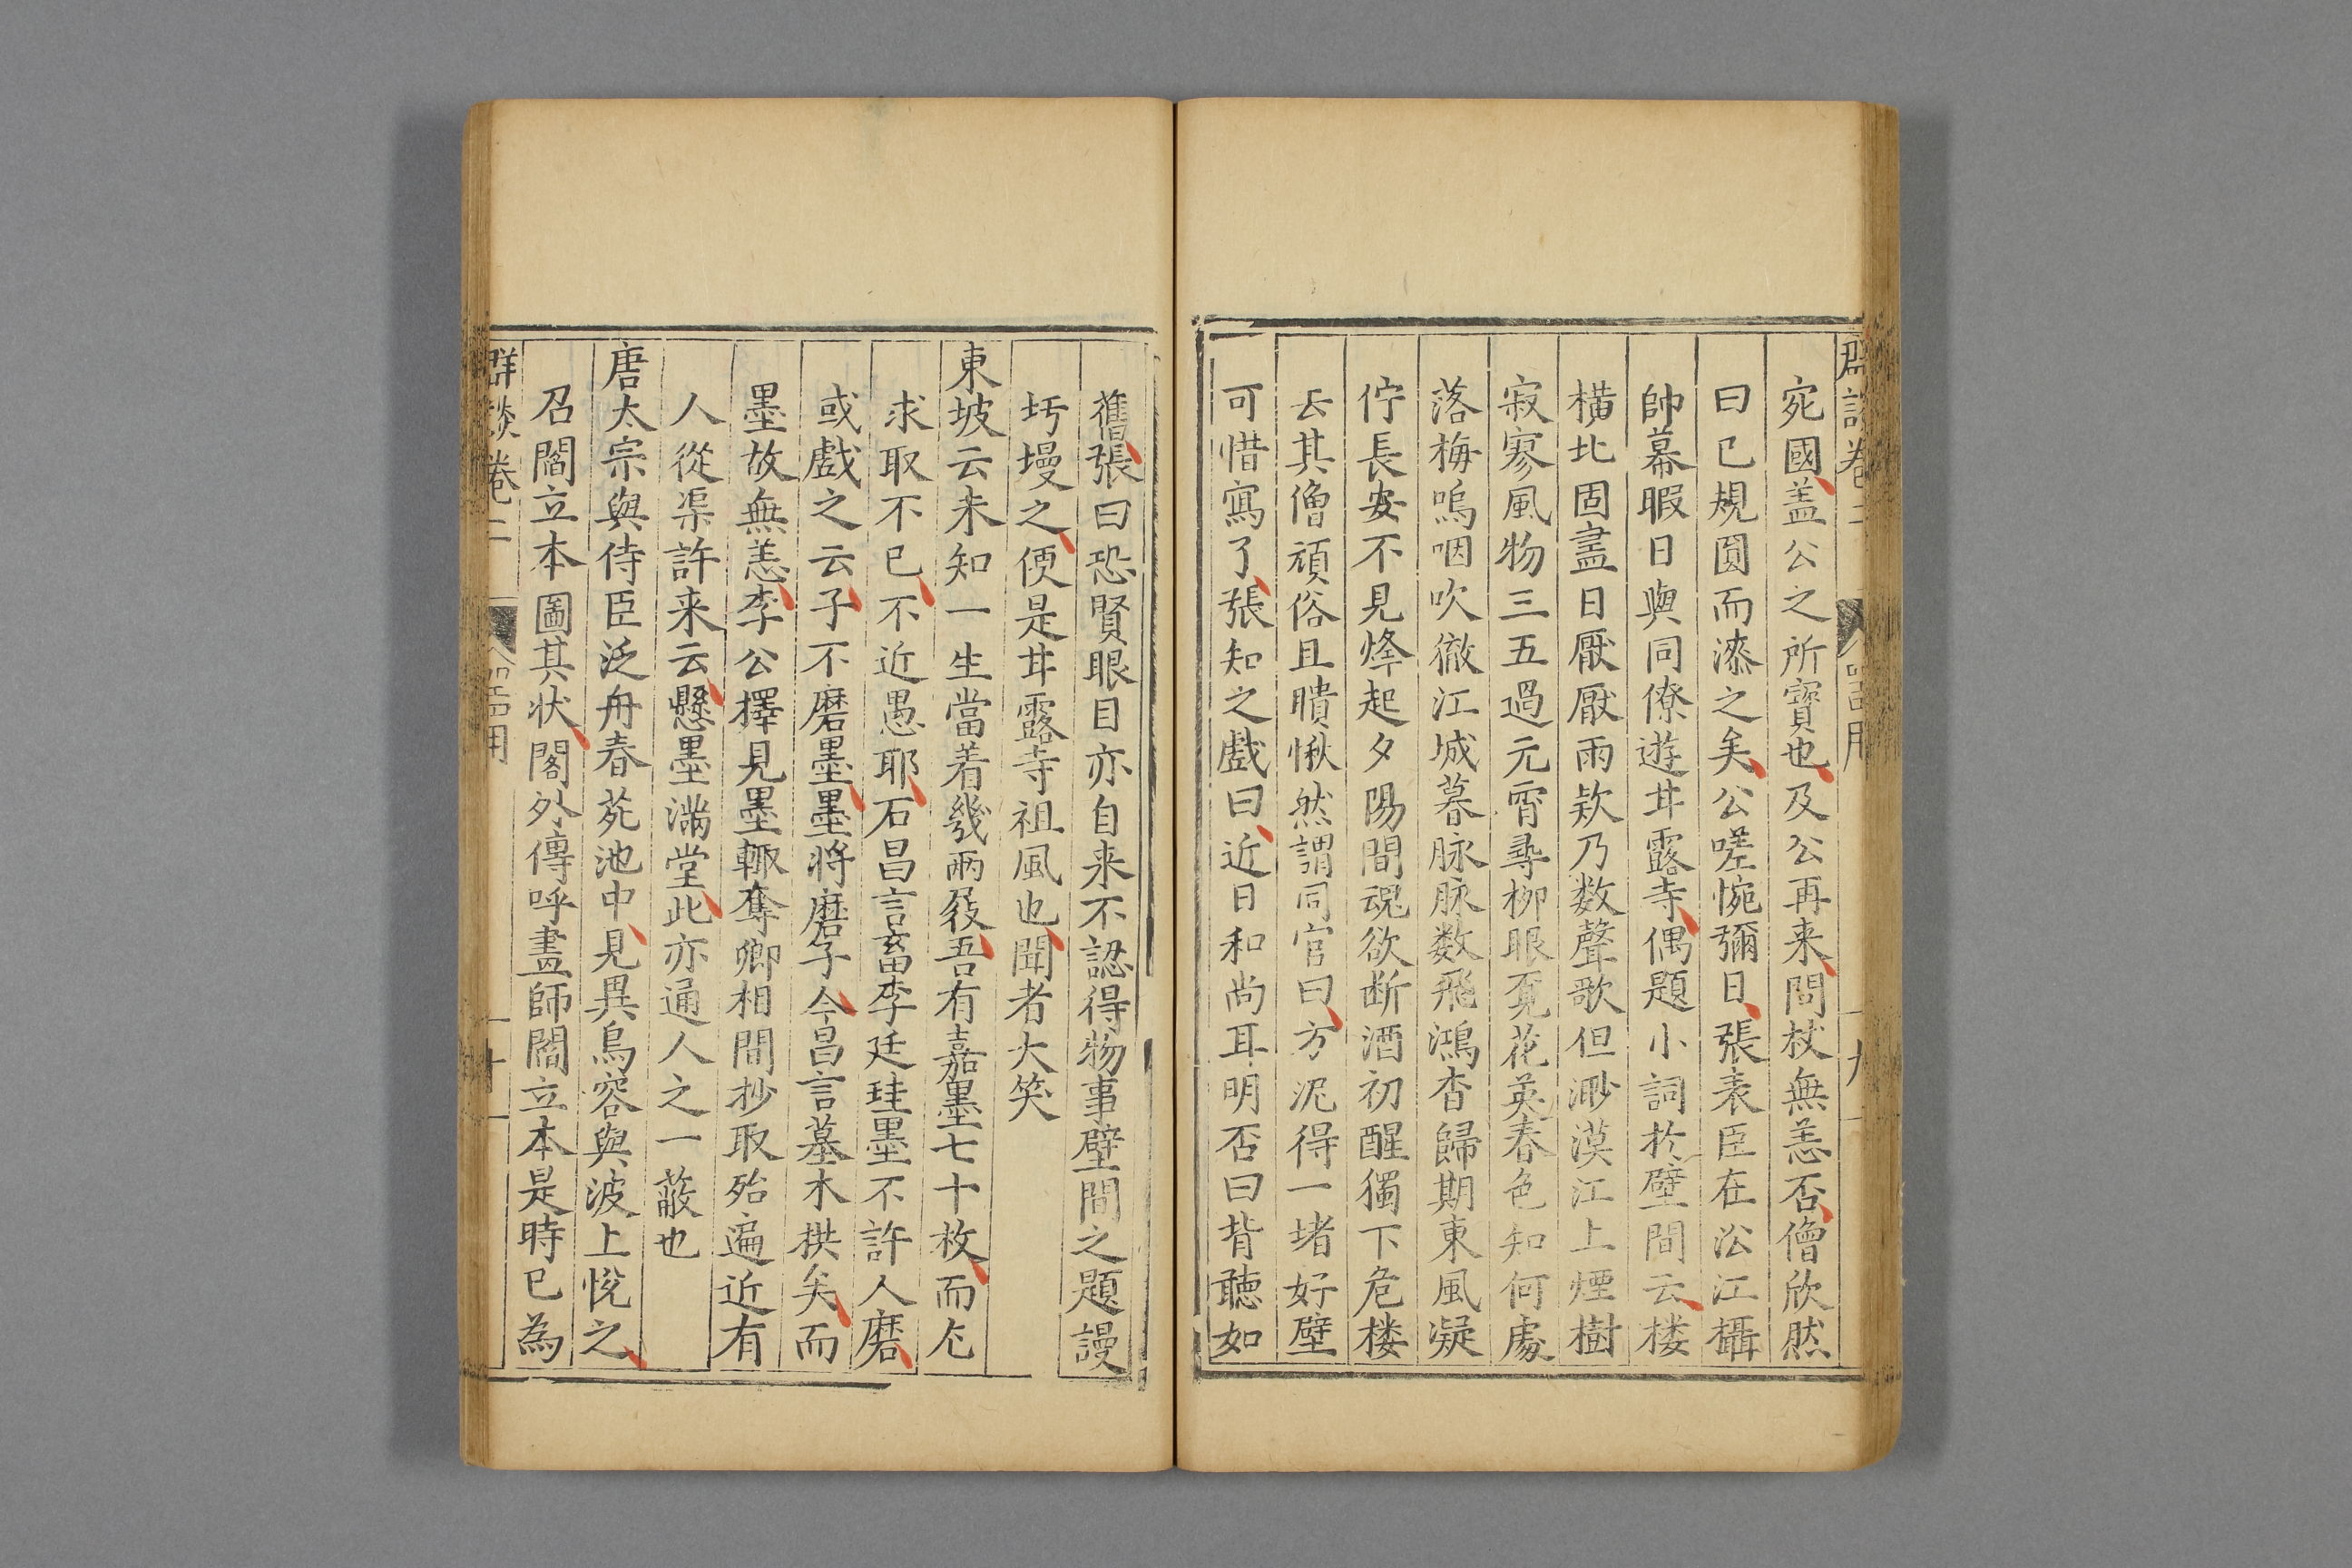 宛國盖公之所寳也及公再来問杖無恙否僧欣然
曰已規圓而漆之矣公嗟惋彌日張表臣在㳂江攝
帥幕暇日與同僚遊甘露寺偶題小詞於壁間云楼
橫北固盡日厭厭雨欵乃数聲歌但渺漠江上煙樹
寂寥風物三五過元霄尋柳眼覔花英春色知何處
落梅嗚咽吹徹江城暮脉脉数飛鴻杳歸期東風凝
佇長安不見烽起夕陽間魂欲断酒初醒獨下危楼
去其僧頑俗且瞶愀然謂同官曰方泥得一堵好壁
可惜寫了張知之戲曰近日和尚耳明否曰背聽如
舊張曰恐賢眼目亦自来不認得物事壁間之題謾
圬墁之便是甘露寺祖風也聞者大笑
東坡云未知一生當着幾兩屐吾有嘉墨七十枚而尤
求取不已不近愚耶石昌言畜李廷珪墨不許人磨
或戲之云子不磨墨墨將磨子今昌言墓木拱矣而
墨故無恙李公擇見墨輙奪卿相間抄取殆遍近有
人從渠許来云懸墨滿堂此亦通人之一蔽也
唐太宗與侍臣泛舟春苑池中見異鳥容與波上悅之
召閻立本圖其状閣外傳呼畫師閻立本是時已為
群談卷二 器用 十